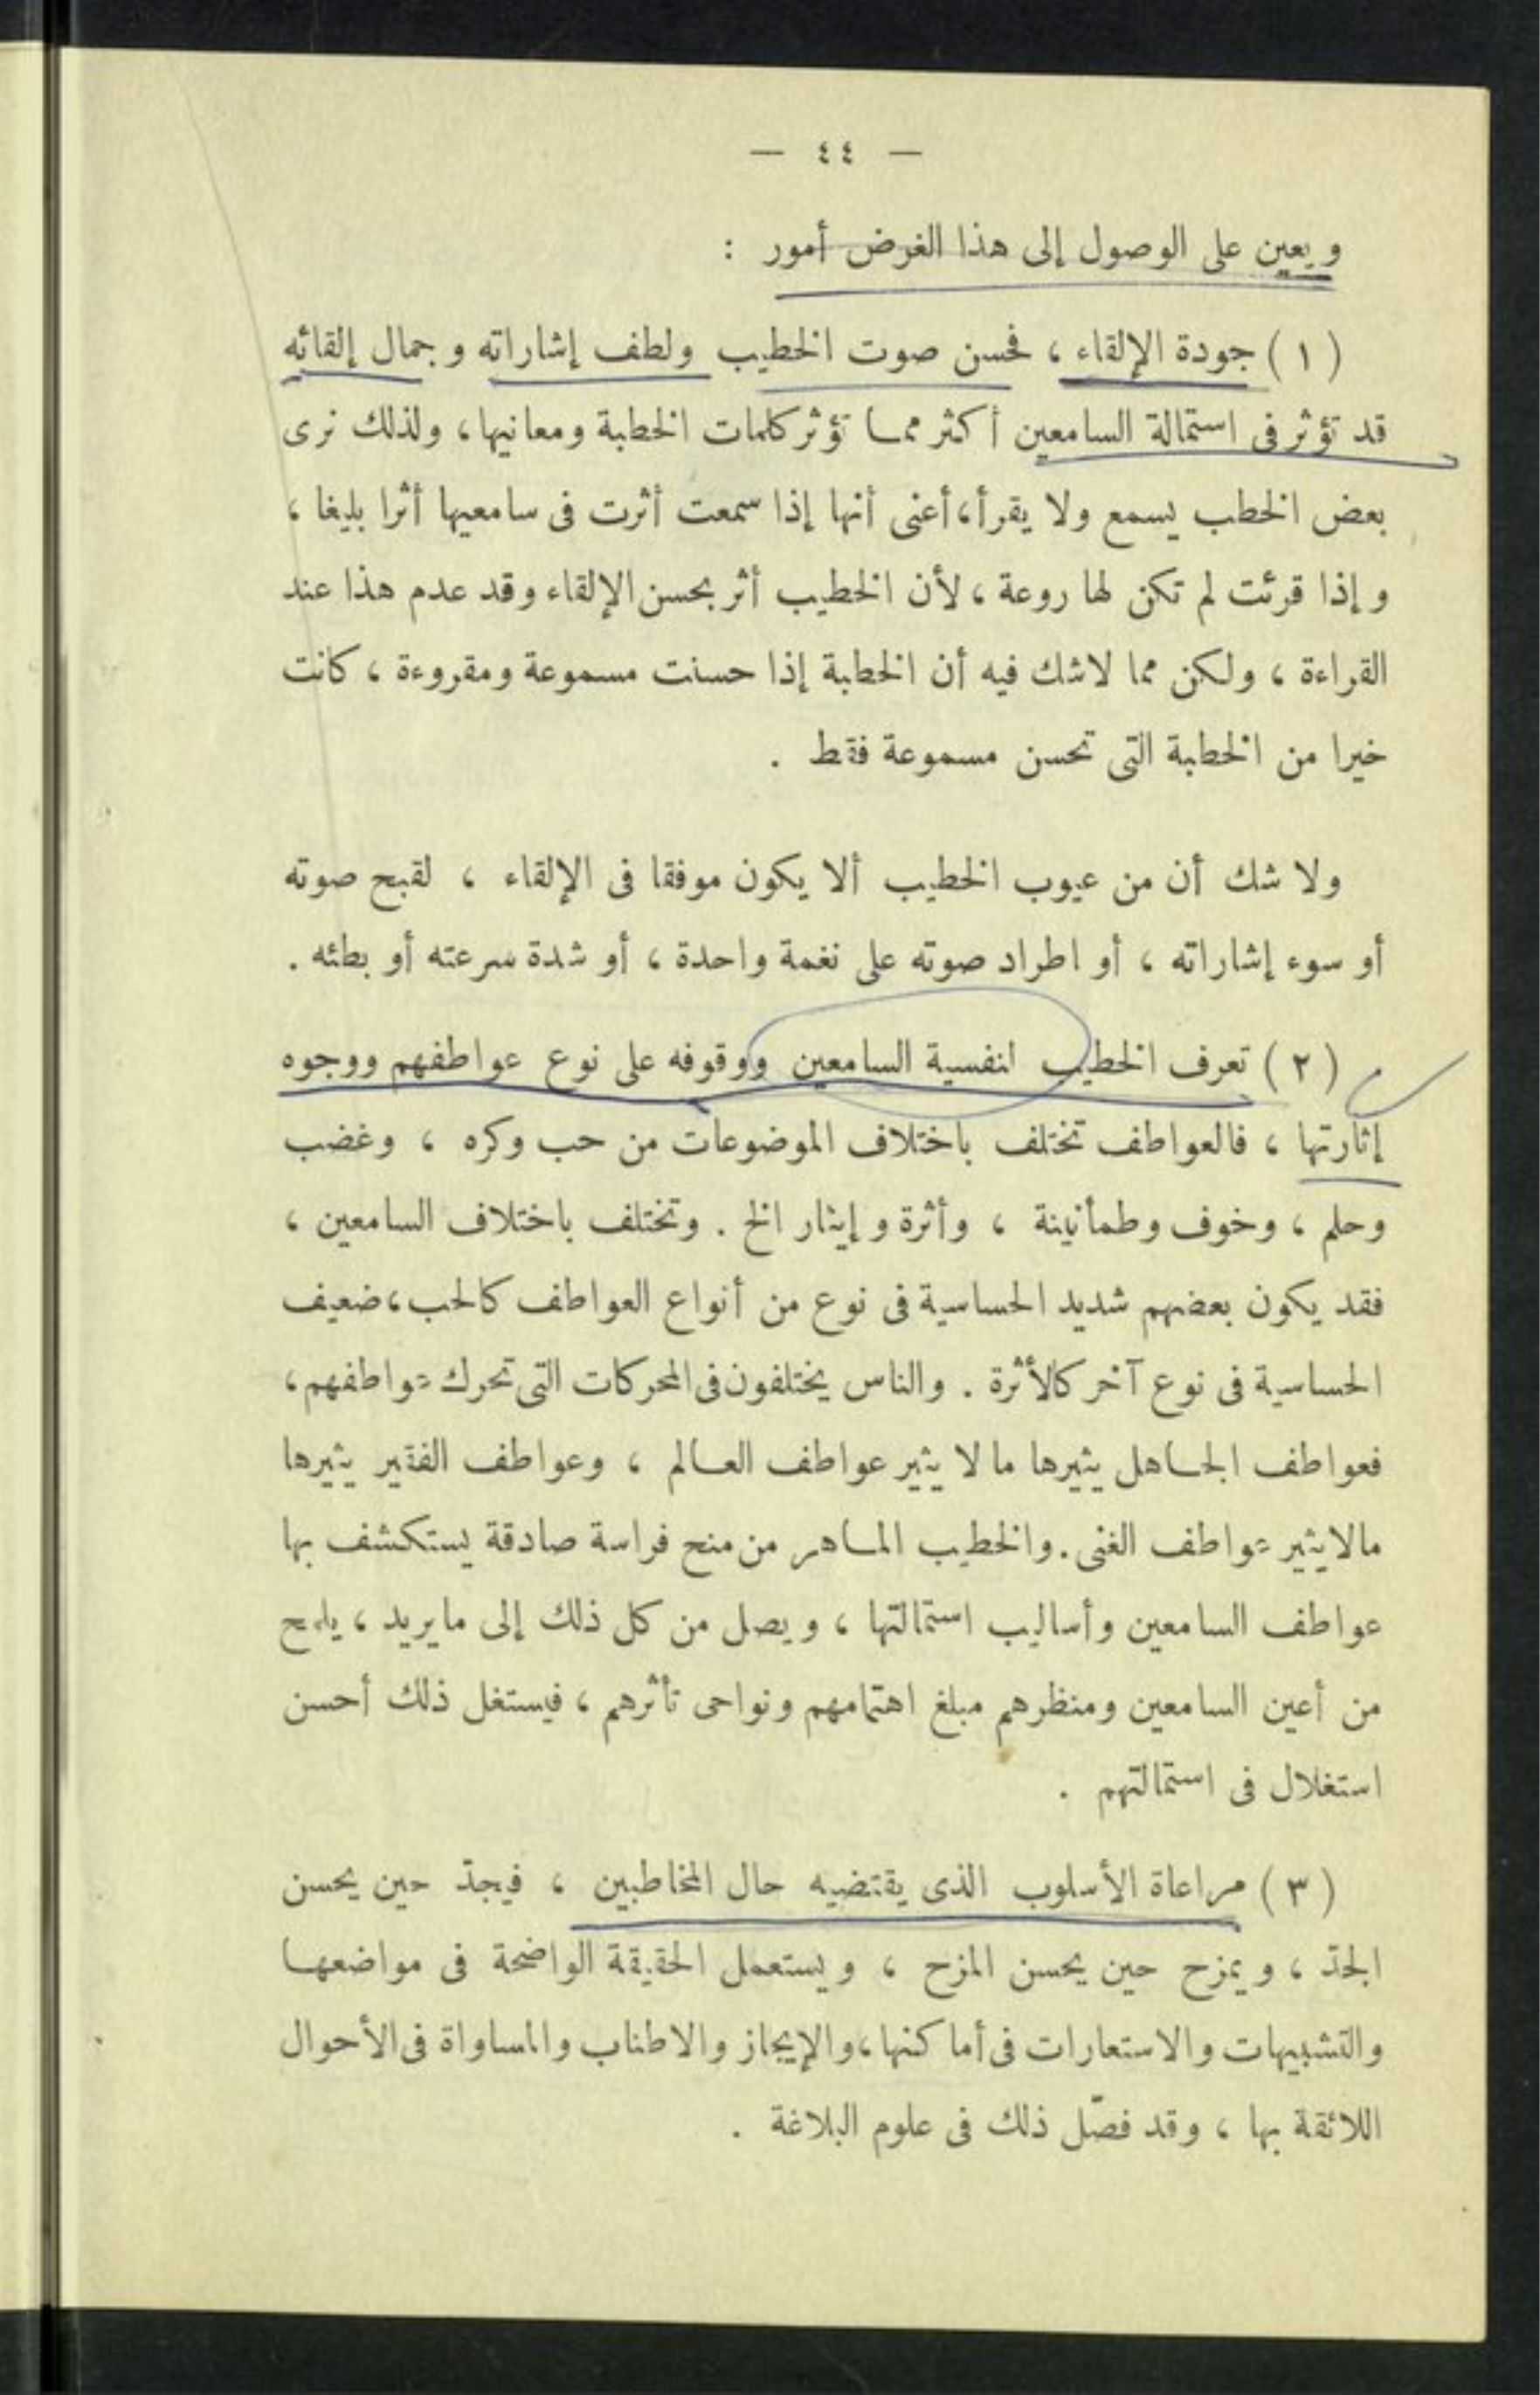 — ٤٤ —
ويعين على الوصول إلى هذا الغرض أمور :
( ١ ) جودة الإلقاء ، فحسن صوت الخطيب ولطف إشاراته وجمال إلقائه
قد تؤثر فى استمالة السامعين أكثر ممـا تؤثر كلمات الخطبة ومعانيها، ولذلك نرى
بعض الخطب يسمع ولا يقرأ، أعنى أنها إذا سمعت أثرت فى سامعيها أثرا بليغا ،
وإذا قرئت لم تكن لها روعة ، لأن الخطيب أثر بحسن الإلقاء وقد عدم هذا عند
القراءة ، ولكن مما لاشك فيه أن الخطبة إذا حسنت مسموعة ومقروءة ، كانت
خيرا من الخطبة التى تحسن مسموعة فقط .
ولا شك أن من عيوب الخطيب ألا يكون موفقا فى الإلقاء ، لقبح صوته
أو سوء إشاراته ، أو اطراد صوته على نغمة واحدة ، أو شدة سرعته أو بطئه .
( ٢ ) تعرف الخطيب لنفسية السامعين ووقوفه على نوع عواطفهم ووجوه
إثارتها ، فالعواطف تختلف باختلاف الموضوعات من حب وكره ، وغضب
وحلم ، وخوف وطمأنينة ، وأثرة وإيثار الخ . وتختلف باختلاف السامعين ،
فقد يكون بعضهم شديد الحساسية فى نوع من أنواع العواطف كالحب، ضعيف
الحساسية فى نوع آخر كالأثرة . والناس يختلفون فى المحركات التى تحرك عواطفهم،
فعواطف الجـاهل يثيرها ما لا يثير عواطف العـالم ، وعواطف الفقير يثيرها
مالايثير عواطف الغنى. والخطيب المـاهر من منح فراسة صادقة يستكشف بها
عواطف السامعين وأساليب استمالتها ، ويصل من كل ذلك إلى مايريد ، يلمح
من أعين السامعين ومنظرهم مبلغ اهتمامهم ونواحى تأثرهم ، فيستغل ذلك أحسن
استغلال فى استمالتهم .
( ٣ ) مراعاة الأسلوب الذى يقتضيه حال المخاطبين ، فيجدّ حين يحسن
الجدّ ، ويمزح حين يحسن المزح ، ويستعمل الحقيقة الواضحة فى مواضعهـا
والتشبيهات والاستعارات فى أماكنها، والإيجاز والاطناب والمساواة فى الأحوال
اللائقة بها ، وقد فصّل ذلك فى علوم البلاغة .